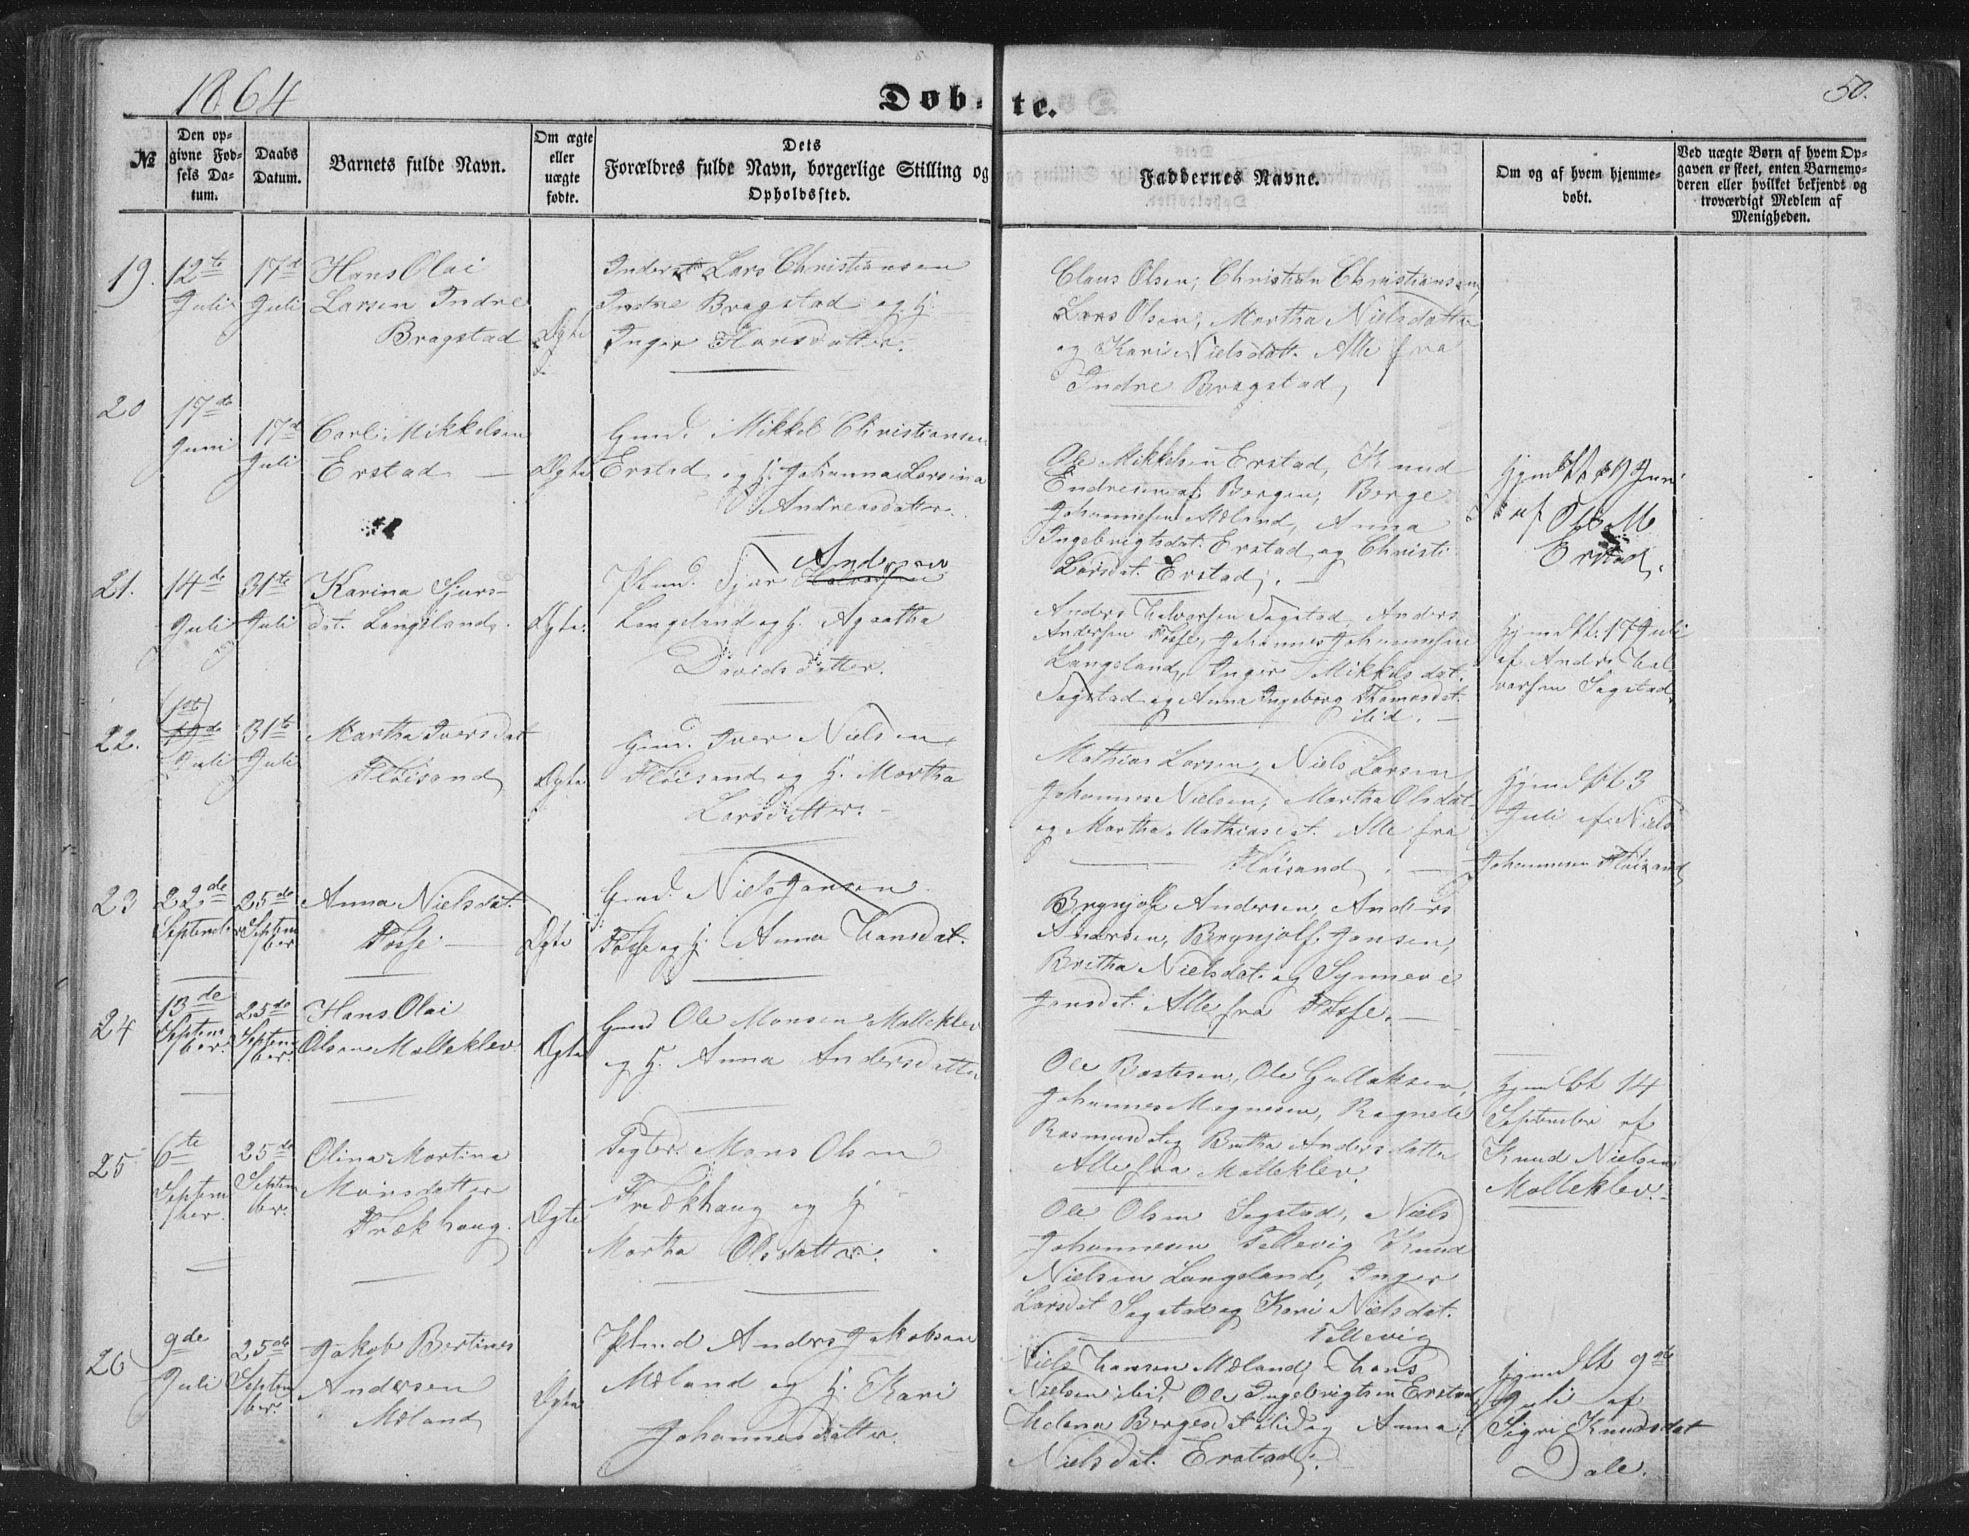 1864
Døbte.
50.
№
Den opgivne Fødsels Datum.
Daabs Datum.
Barnets fulde Navn.
Om ægte eller uægte fødte.
Dets Forældres fulde Navn, borgerlige Stilling og Opholdssted.
Faddernes Navne.
Om og af hvem hjemmedøbt.
Ved uægte Børn af hvem Opgaven er skeet, enten Barnemoderen eller hvilket bekjendt og troværdigt Medlem af Menigheden.
19.
12te
Juli
17de
Juli
Hans Olai
Larsen Indre
Bragstad
Ægte
Inderst Lars Christiansen
Indre Bragstad og H.
Inger Hansdatter.
Claus Olsen, Christian Christiansen,
Lars Olsen, Martha Nielsdatter
og Kari Nielsdatt. Alle fra
Indre Bragstad,
20
17de
Juni
17de
Juli
Carl Mikkelsen
Erstad
Ægte
Gmd. Mikkel Christiansen
Erstad og H. Johanna Larsina
Andreasdatter.
Ole Mikkelsen Erstad, Knud
Endresen af Bergen, Berge
Johannesen Mæland, Anna
Ingebrigtsdat. Erstad og Christi
Larsdat. Erstad.
Hjmdbt 19 Juni
af Ole M
Erstad.
21.
14de
Juli
31te
Juli
Karina Sjurs-
dat. Langeland.
Ægte.
Plmd. Sjur Halvorsen
Andersen
Langeland og H. Agaatha
Davidsdatter.
Anders Halvorsen Sagstad, Anders
Andersen Fosse, Johannes Johannesen
Langeland, Inger Mikkelsdat.
Sagstad og Anna Ingeborg Thomasdat.
ibid.
Hjmdbt. 17 Juli
af Anders Hal
varsen Sagstad
22.
1ste
Juli
31te
Juli
Martha Iversdat
Fløisand
Ægte
Gmd. Iver Nielsen
Fløisand og H. Martha
Larsdatter.
Mathias Larsen, Niels Larsen,
Johannes Nielsen, Martha Olsdat.
og Martha Mathiasdat. Alle fra
Fløisand.
Hjmdbt 3
Juli af Niels
Johannesen Fløisand
23
22de
September
25de
Septem
ber
Anna Nielsdat.
Fosse
Ægte
Gmd. Niels Jansen
Fosse og H. Anna Hansdat.
Brynjolf Andersen, Anders
Andersen, Brynjolf Jansen,
Britha Nielsdat. og Synneve
Jansdat. Alle fra Fosse.
24
13de
Septem
ber.
25de
Septem
ber.
Hans Olai
Olsen Molleklev
Ægte
Gmd Ole Monsen Molleklev
og H. Anna Andersdatter
Ole Bastesen, Ole Gullaksen,
Johannes Magnesen, Ragnele
Rasmusdat og Britha Andersdatter
Alle fra Molleklev.
Hjmdbt 14
September af
Knud Nielsen
Molleklev.
25
6te
Septem
ber.
25de
Septem
ber.
Olina Martina
Monsdatter
Frækhaug.
Ægte
Mons Olsen
Frækhaug og H
Martha Olsdatter.
Ole Olsen Sagstad, Niels
Johannesen Fellevig Knud
Nielsen Langeland, Inger
Larsdat Sagstad og Kari Nielsdat.
Fellevig
26
9de
Juli
25de
Septem
ber.
Jakob Bertines
Andersen
Mæland
Ægte
Plmd Anders Jakobsen
Mæland og H. Kari
Johannesdatter.
Niels Hansen Mæland, Hans
Nielsen ibid Ole Ingebrigtsen Erstad
Helena Bergesdat ibid og Anna
Nielsdat. Erstad.
Hjmdbt 9de
Juli af
Sigri Knudsdat
Dale.